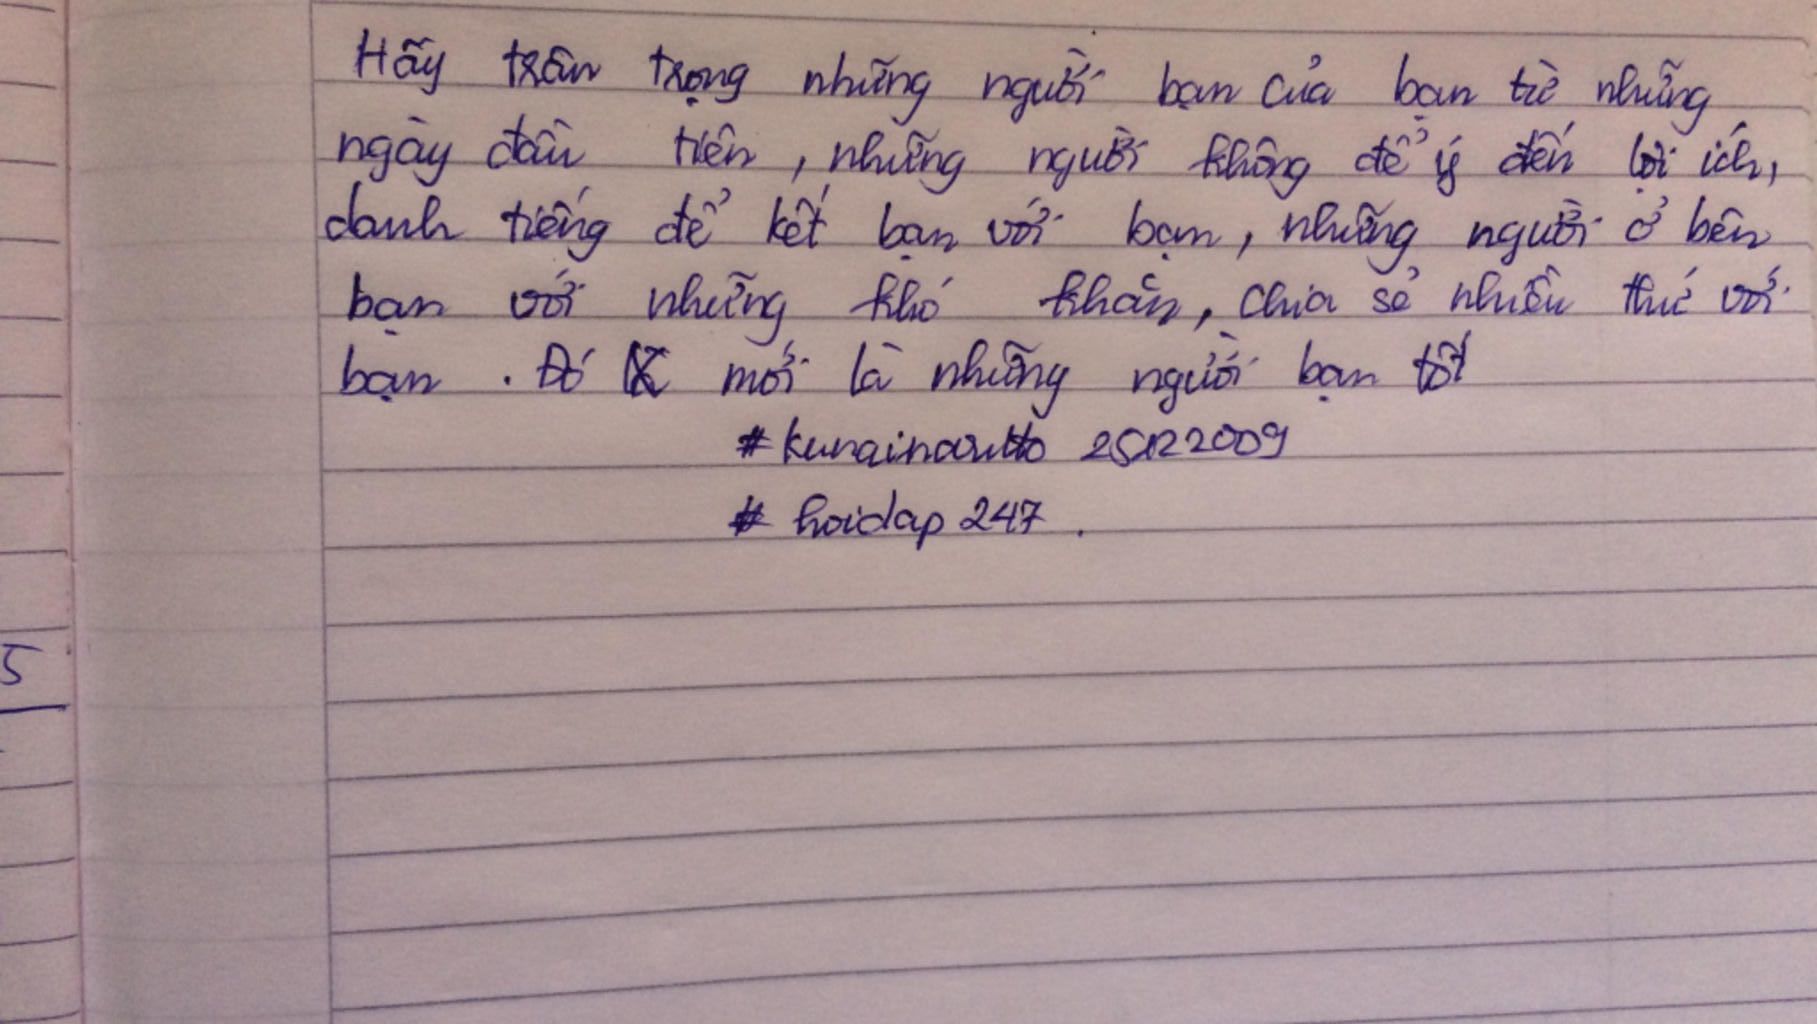 Hãy trân trọng những người bạn của bạn từ những
ngày đầu tiên, những người không để ý đến lợi ích,
danh tiếng để kết bạn với bạn, những người ở bên
bạn với những khó khăn, chia sẻ nhiều thứ với
bạn. Đó mới là những người bạn tốt
#kunainaruto 25122009
# hoidap 247.
5